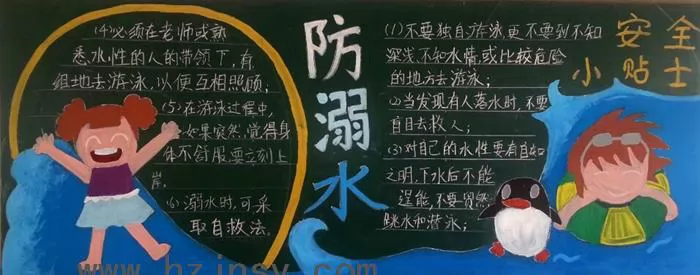 防溺水
安全
小贴士
(1)不要独自游泳更不要到不知
深浅,不知水情,或比较危险
的地方去游泳;
(2)当发现有人落水时,不要
盲目去救人;
(3)对自己的水性要有自知
之明,下水后不能
逞能,不要贸然
跳水和潜泳;
(4)必须在老师或熟
悉水性的人的带领下,有
组地去游泳,以便互相照顾;
(5)在游泳过程中,
如果突然觉得身
体不舒服要立刻上
岸,
(6)溺水时,可采
取自救法。
www.hzjnsy.com